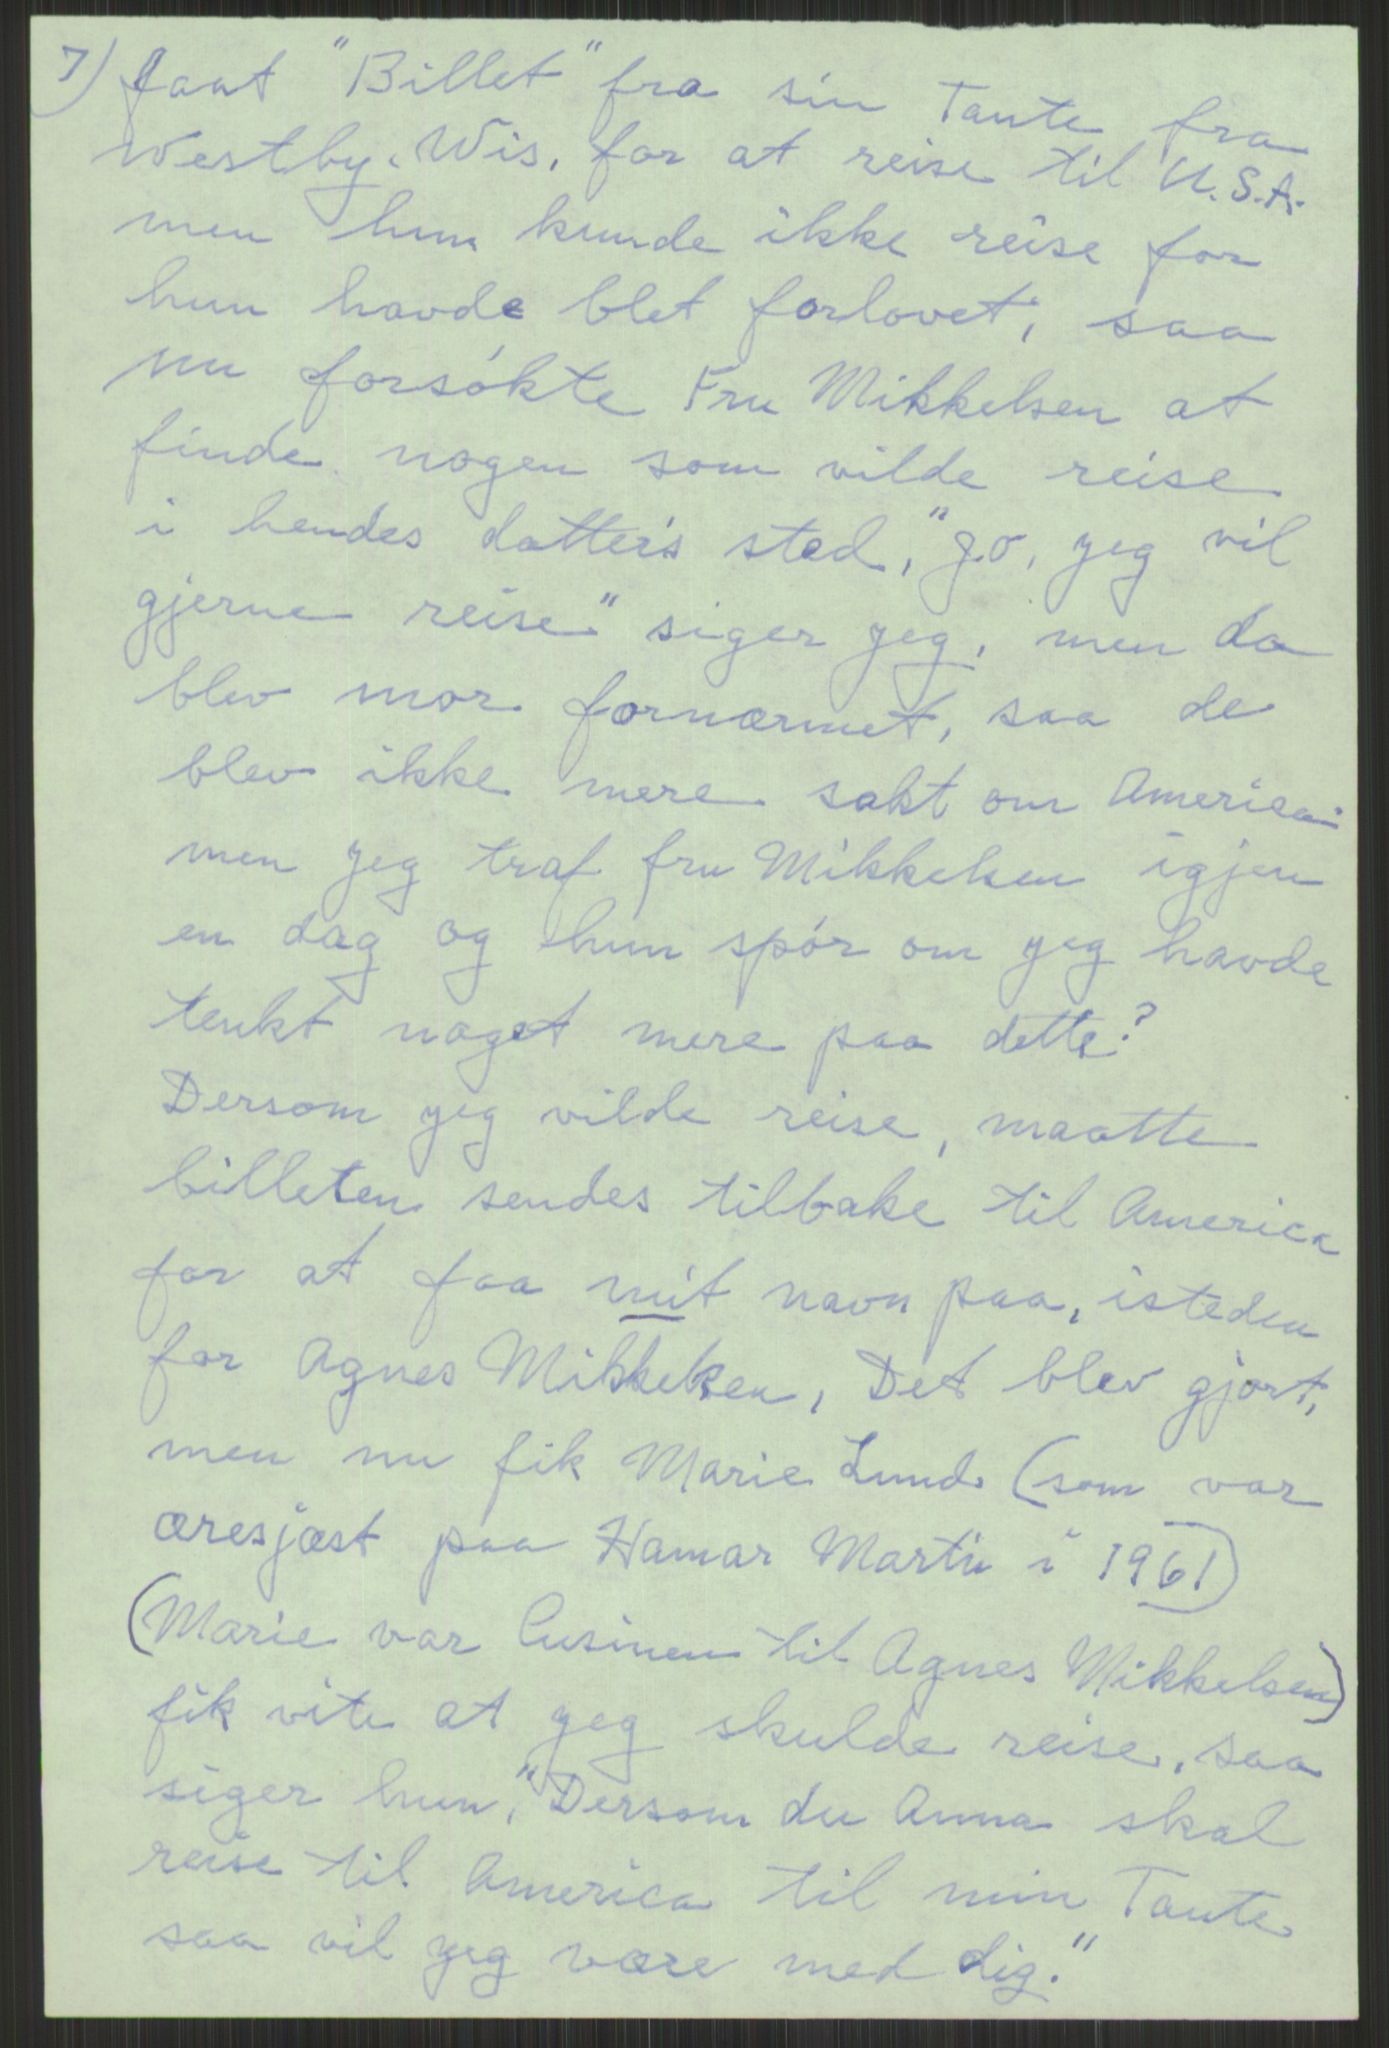 7) faat "Billet" fra sin Tante fra
Westby. Wis. for at reise til U.S.A.
men hun kunde ikke reise for
hun havde blet forlovet, saa
nu forsókte Fru Mikkelsen at
finde nogen som vilde reise
i hendes datter's sted, "Jo, jeg vil
gjerne reise" siger jeg, men da
blev mor fornærmet, saa de
blev ikke mere sakt om America
men jeg traf fru Mikkelsen igjen
en dag og hun spór om jeg havde
tenkt noget mere paa dette?
Dersom jeg vilde reise, maatte
billeten sendes tilbake til America
for at faa mit navn paa, isteden
for Agnes Mikkelsen, Det blev gjort,
men nu fik Marie Lund (som var
æresjæst paa Hamar Martn i 1961)
(Marie var Cusinen til Agnes Mikkelsen)
fik vite at jeg skulde reise, saa
siger hun, "Dersom du Anna skal
reise til America til min Tante
saa vil jeg være med dig."